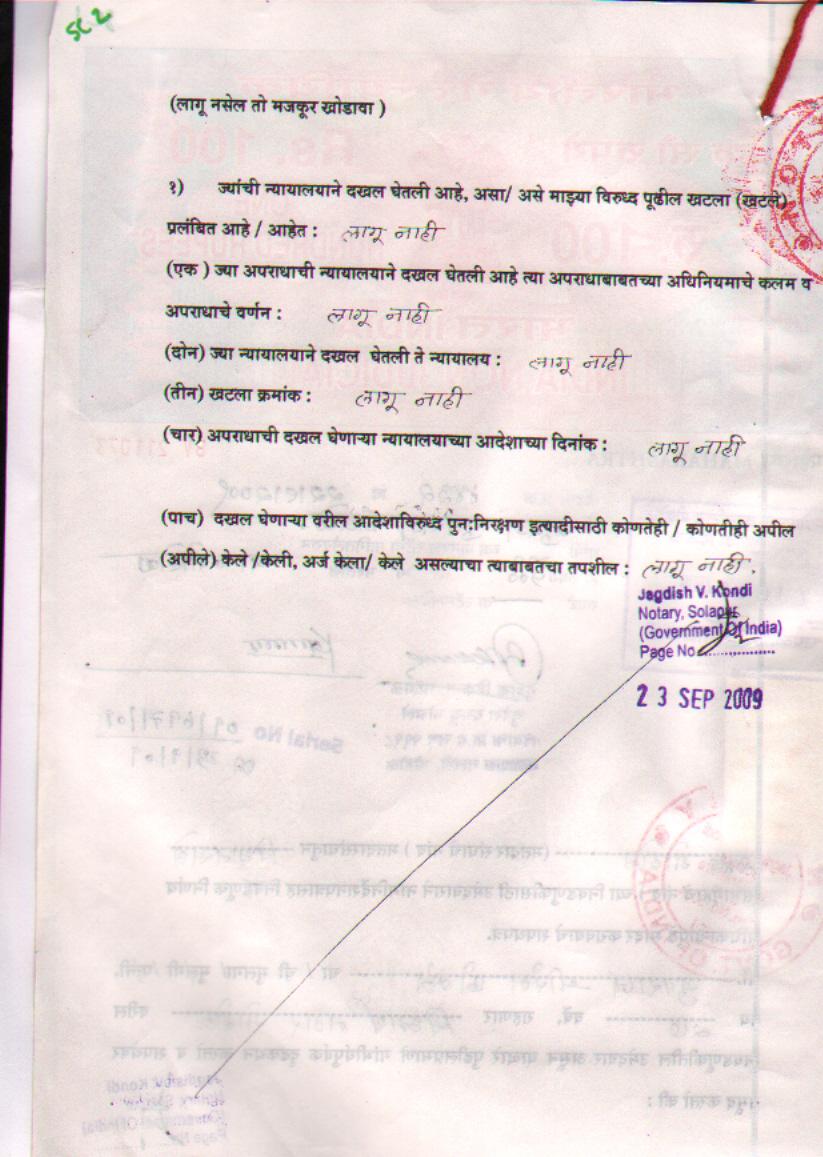 SC 2
(लागू नसेल तो मजकूर खोडावा )
१) ज्यांची न्यायालयाने दखल घेतली आहे, असा/ असे माझ्या विरुध्द पूढील खटला (खटले)
प्रलंबित आहे / आहेत : लागू नाही
(एक ) ज्या अपराधाची न्यायालयाने दखल घेतली आहे त्या अपराधाबाबतच्या अधिनियमाचे कलम व
अपराधाचे वर्णन : लागू नाही
(दोन) ज्या न्यायालयाने दखल घेतली ते न्यायालय : लागू नाही
(तीन) खटला क्रमांक : लागू नाही
(चार) अपराधाची दखल घेणाऱ्या न्यायालयाच्या आदेशाच्या दिनांक : लागू नाही
(पाच) दखल घेणाऱ्या वरील आदेशाविरुध्द पुन:निरक्षण इत्यादीसाठी कोणतेही / कोणतीही अपील
(अपीले) केले /केली, अर्ज केला/ केले असल्याचा त्याबाबतचा तपशील : लागू नाही.
Jagdish V. Kondi
Notary, Solapur
(Government Of India)
Page No.................
2 3 SEP 2009